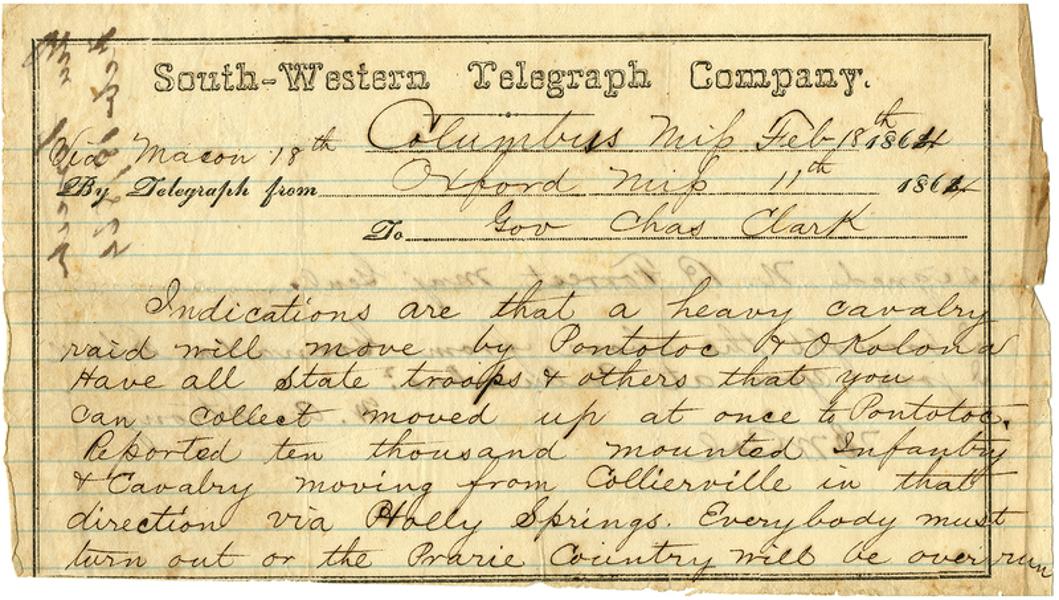 South-Western Telegraph Company.
Columbus Miss Feb 18th 1864
Via Macon 18th
By Telegraph from Oxford Miss 11th 1864
To Gov Chas Clark
Indications are that a heavy cavalry
raid will move by Pontotoc & Okolona
Have all State troops & others that you
can collect moved up at once to Pontotoc.
Reported ten thousand mounted Infantry
& Cavalry moving from Collierville in that
direction via Holly Springs. Everybody must
turn out or the Prarie Country will be over run